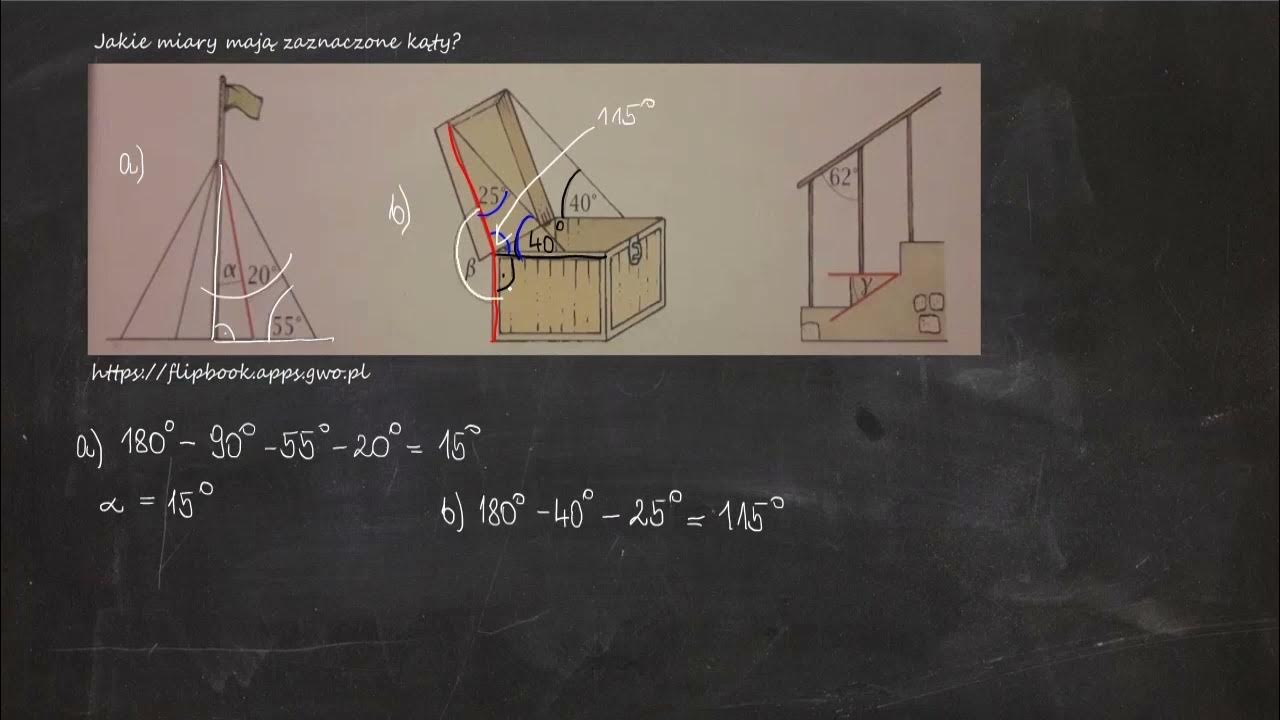 Jakie miary mają zaznaczone kąty?
a)
α 20°
55°
b)
115°
25°
40°
40°
β
62°
γ
https://flipbook.apps.gwo.pl
a) 180° - 90° - 55° - 20° = 15°
α = 15°
b) 180° - 40° - 25° = 115°